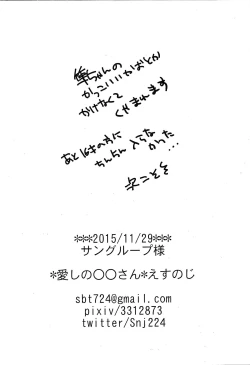 隼ちゃんの
かっこいいかばとか
かけなくて
くやまれます
あとはその次に
ちんちん入らな
かった…
次こそそ
***2015/11/29***
サングループ様
*愛しの〇〇さん*えすのじ
sbt724@gmail.com
pixiv/3312873
twitter/Snj224